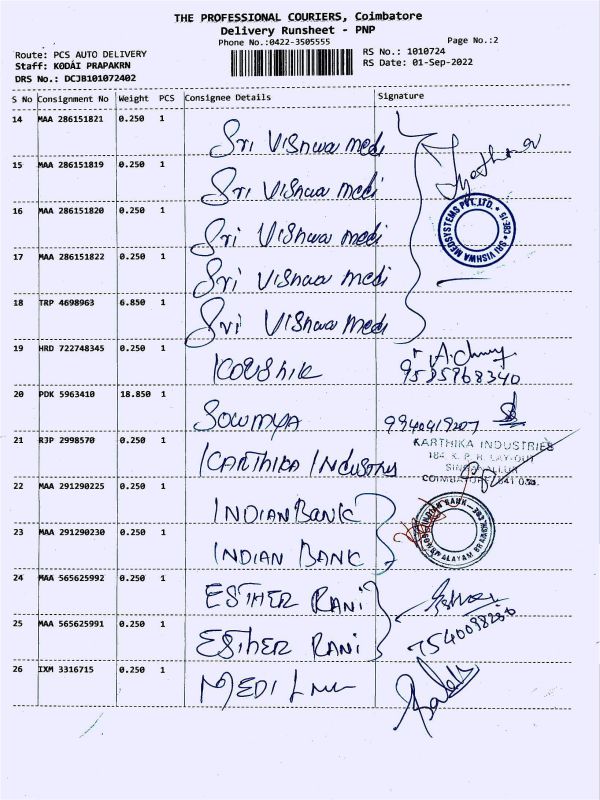 THE PROFESSIONAL COURIERS, Coimbatore
Delivery Runsheet - PNP
Phone No.:0422-3505555
Page No.:2
Route: PCS AUTO DELIVERY
RS No.: 1010724
Staff: KODAI PRAPAKRN
RS Date: 01-Sep-2022
DRS No.: DCJB101072402
S No Consignment No Weight PCS Consignee Details Signature
14 MAA 286151821 0.250 1 Sri Vishwa medi
15 MAA 286151819 0.250 1 Sri Vishwa medi
16 MAA 286151820 0.250 1 Sri Vishwa medi
SRI VISHWA MEDSYSTEMS PVT.LTD. * CBE-15 *
17 MAA 286151822 0.250 1 Sri Vishwa medi
18 TRP 4698963 6.850 1 Sri Vishwa medi
19 HRD 722748345 0.250 1 KOUSHIK
20 PDK 5963410 18.850 1 SOWMYA 9940419207
21 RJP 2998570 0.250 1 KARTHIKA INDUSTRY
KARTHIKA INDUSTRIES
184, K. R. R. LAY-OUT
COIMBATORE
22 MAA 291290225 0.250 1 INDIAN BANK
23 MAA 291290230 0.250 1 INDIAN BANK
INDIAN BANK
24 MAA 565625992 0.250 1 ESTHER RANI
25 MAA 565625991 0.250 1 ESTHER RANI
26 IXM 3316715 0.250 1 MEDI